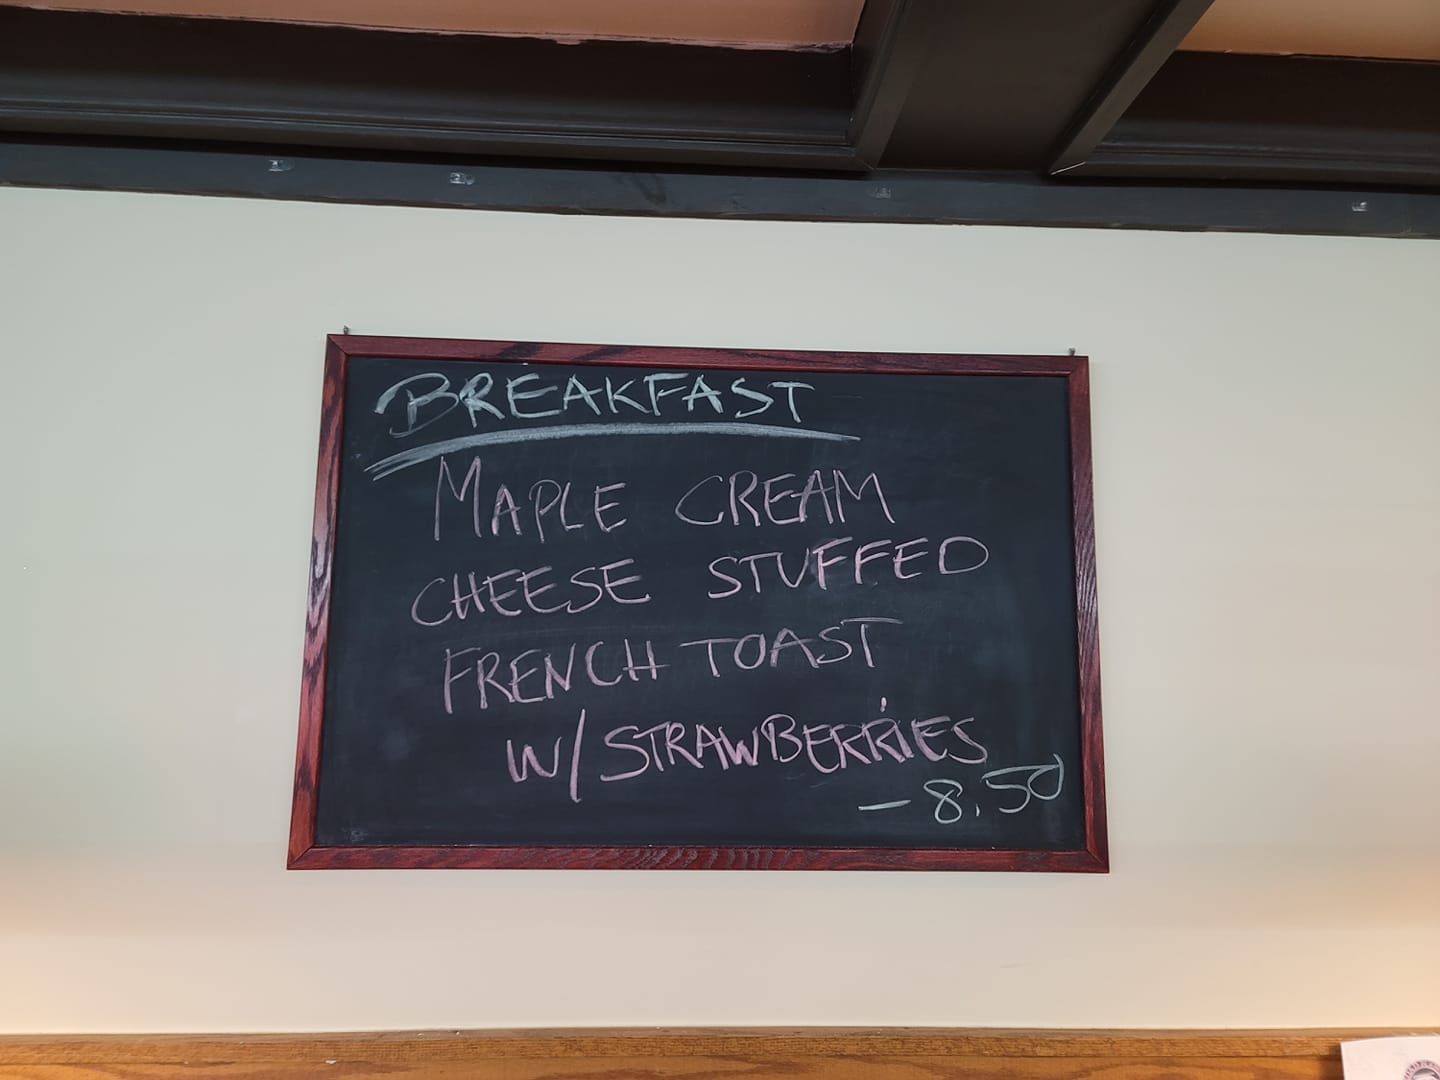 BREAKFAST
MAPLE CREAM
CHEESE STUFFED
FRENCH TOAST
W/ STRAWBERRIES
- 8.50